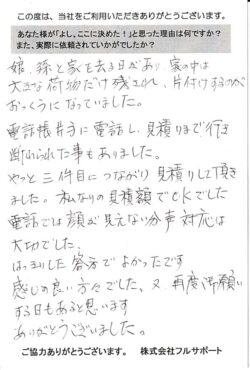 この度は、当社をご利用いただきありがとうございます。
あなた様が「よし、ここに決めた!」と思った理由は何ですか?
また、実際に依頼されていかがでしたか?
娘、孫と家を去る日があり、家の中は
大きな荷物だけ残され、片付けするのが
おっくうになっていました。
電話帳片手に電話し、見積りまで行き
断わられた事もありました。
やっと三件目につながり見積りして頂き
ました。私なりの見積額でOKでした
電話では顔が見えない分声対応は
大切でした、
はっきりした答方でよかったです
感じの良い方々でした、又再度お願い
する日もあると思います
ありがとうございました。
ご協力ありがとうございます。 株式会社フルサポート